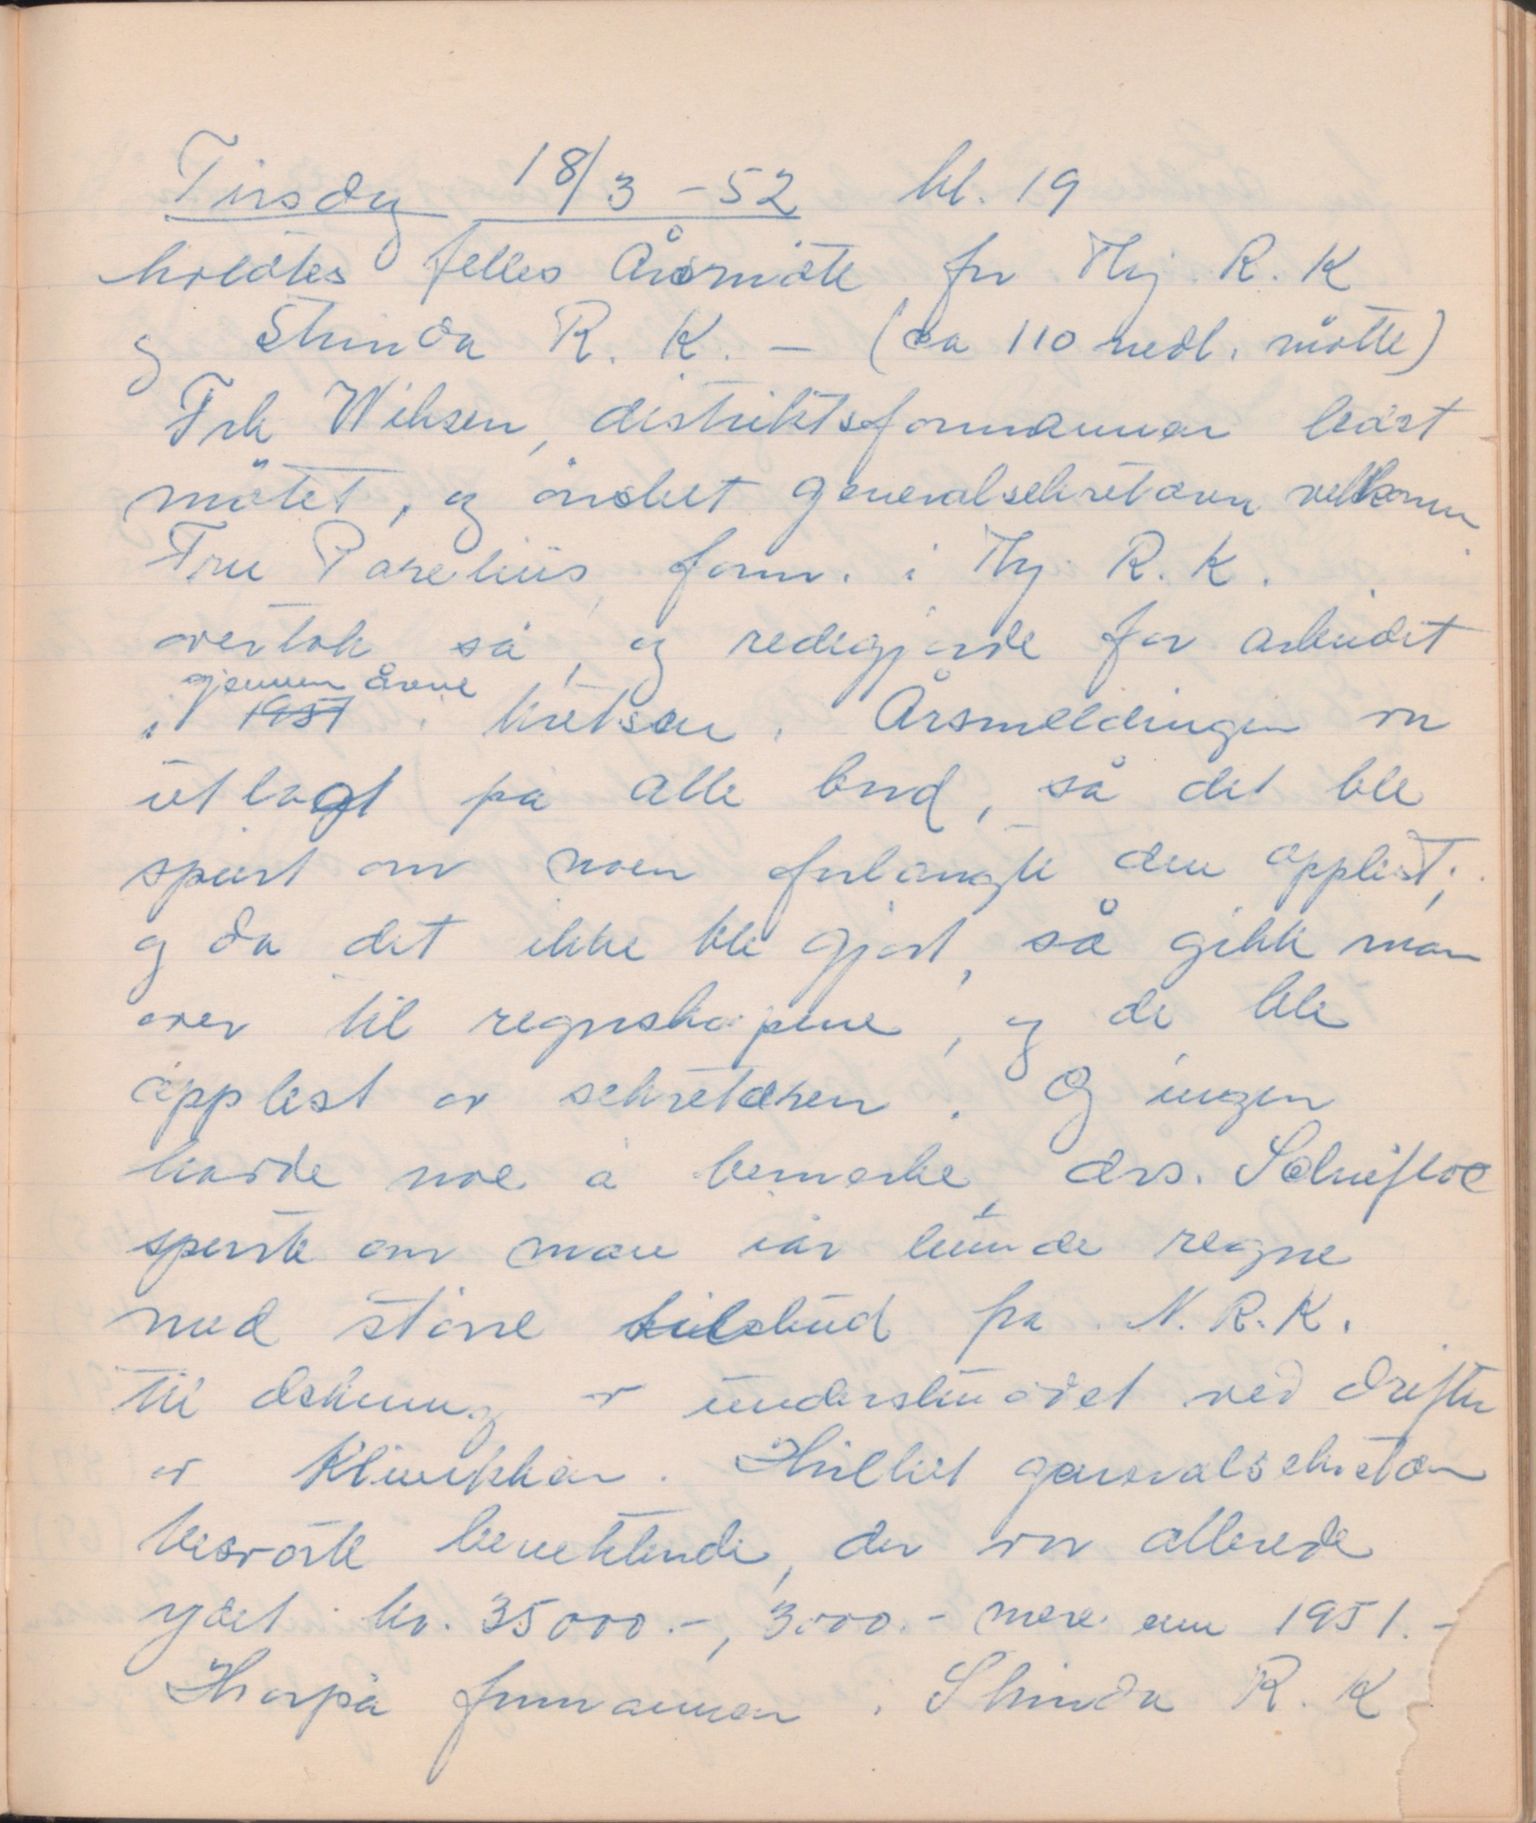 Tirsdag 18/3 -52 kl. 19
holdtes felles Årsmöte for Thj. R. K
og Strinda R. K. — (ca 110 medl. mötte)
Frk Wiksen, distriktsformannen ledet
mötet, og önsket generalsekretæren velkommen
Fru Parelius, form. i Thj. R. K.
overtok så, og redegjorde for arbeidet
gjennem årene
i 1951 i kretsen. Årsmeldingen var
utlagt på alle bord, så det ble
spurt om noen forlangte den opplest;
og da det ikke ble gjort, så gikk man
over til regnskapene, og de ble
opplest av sekretæren. Og ingen
hadde noe å bemerke, drs. Schiefloe
spurte om man iår kunde regne
med större tilskud fra N. R. K.
til dekning av underskuddet ved driften
av Klinikken. Hvilket generalsekretæren
besvarte benektende, der var allerede
ydet kr. 35000.-, 3000.- mere enn 1951. -
Herpå formannen i Strinda R. K